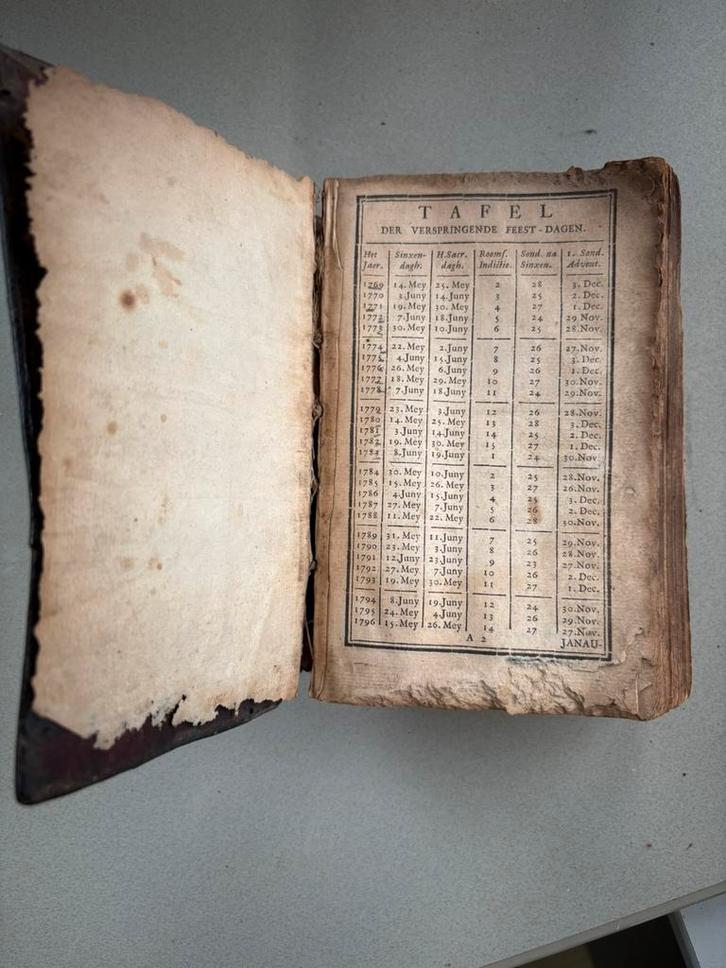 TAFEL
DER VERSPRINGENDE FEEST-DAGEN.
Het Jaer. Sinxen-dagh. H.Sacr. dagh. Roomſ. Indictie. Sond. na Sinxen. 1. Sond. Advent.
1769 14. Mey 25. Mey 2 28 3. Dec.
1770 3.Juny 14.Juny 3 25 2. Dec.
1771 19. Mey 30. Mey 4 27 1. Dec.
1772 7.Juny 18.Juny 5 24 29.Nov.
1773 30. Mey 10.Juny 6 25 28.Nov.
1774 22. Mey 2.Juny 7 26 27.Nov.
1775 4.Juny 15.Juny 8 25 3. Dec.
1776 26. Mey 6.Juny 9 26 1. Dec.
1777 18. Mey 29. Mey 10 27 30.Nov.
1778 7.Juny 18.Juny 11 24 29.Nov.
1779 23. Mey 3.Juny 12 26 28.Nov.
1780 14. Mey 25. Mey 13 28 3. Dec.
1781 3.Juny 14.Juny 14 25 2. Dec.
1782 19. Mey 30. Mey 15 27 1. Dec.
1783 8.Juny 19.Juny 1 24 30.Nov.
1784 30. Mey 10.Juny 2 25 28.Nov.
1785 15. Mey 26. Mey 3 27 26.Nov.
1786 4.Juny 15.Juny 4 25 3. Dec.
1787 27. Mey 7.Juny 5 26 2. Dec.
1788 11. Mey 22. Mey 6 28 30.Nov.
1789 31. Mey 11.Juny 7 25 29.Nov.
1790 23. Mey 3.Juny 8 26 28.Nov.
1791 12.Juny 23.Juny 9 23 27.Nov.
1792 27. Mey 7.Juny 10 26 2. Dec.
1793 19. Mey 30. Mey 11 27 1. Dec.
1794 8.Juny 19.Juny 12 24 30.Nov.
1795 24. Mey 4.Juny 13 26 29.Nov.
1796 15. Mey 26. Mey 14 27 27.Nov.
A 2 JANAU-